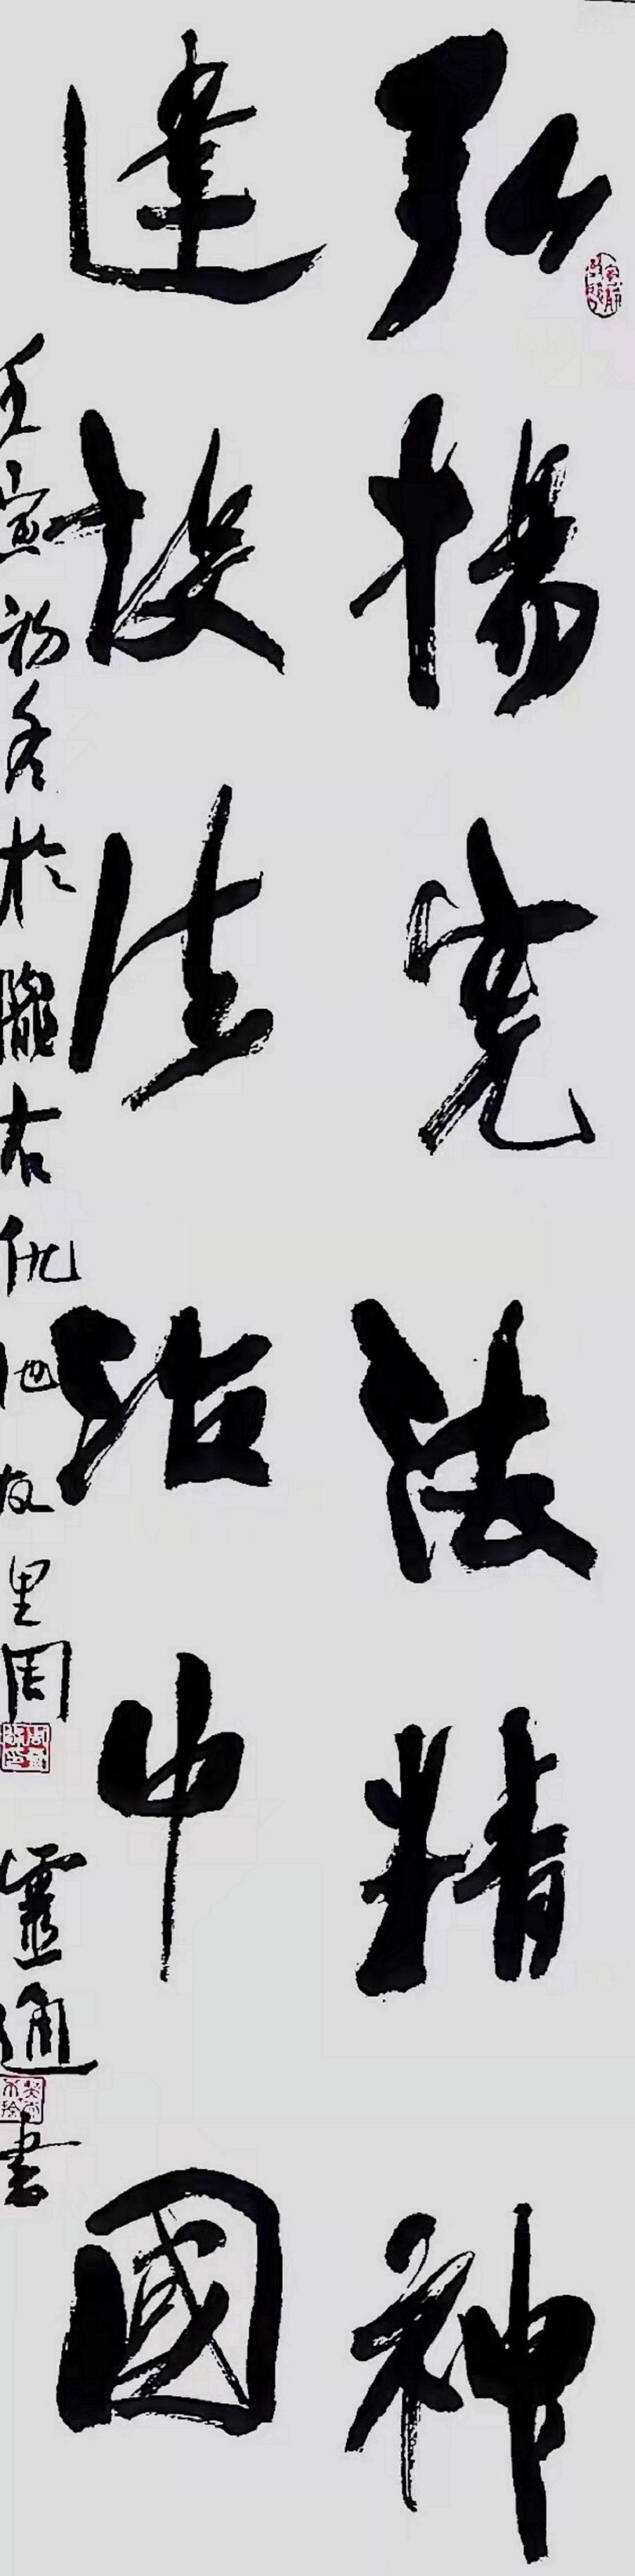 弘揚憲法精神
建設法治中國
壬寅初冬於隴右仇池故里周靈通書